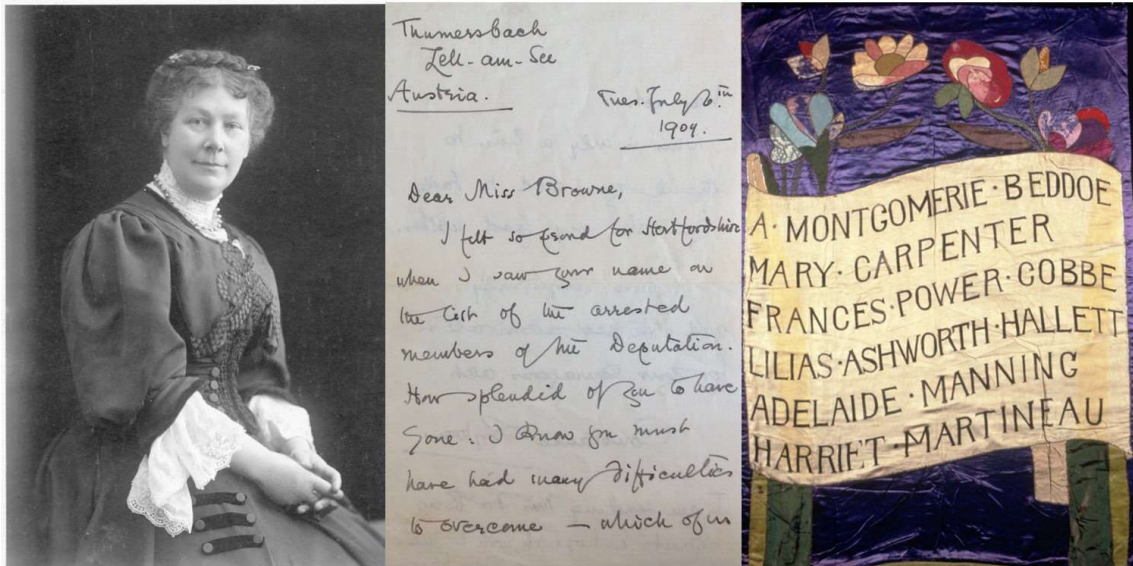 Thumersbach
Zell-am-See
Austria.
Tues. July 6th
1909.
Dear Miss Browne,
I felt so proud for Hertfordshire
when I saw your name on
the list of the arrested
members of the Deputation.
How splendid of you to have
gone. I know you must
have had many difficulties
to overcome — which of us
A·MONTGOMERIE·BEDDOE
MARY·CARPENTER
FRANCES·POWER·COBBE
LILIAS·ASHWORTH·HALLETT
ADELAIDE·MANNING
HARRIET·MARTINEAU